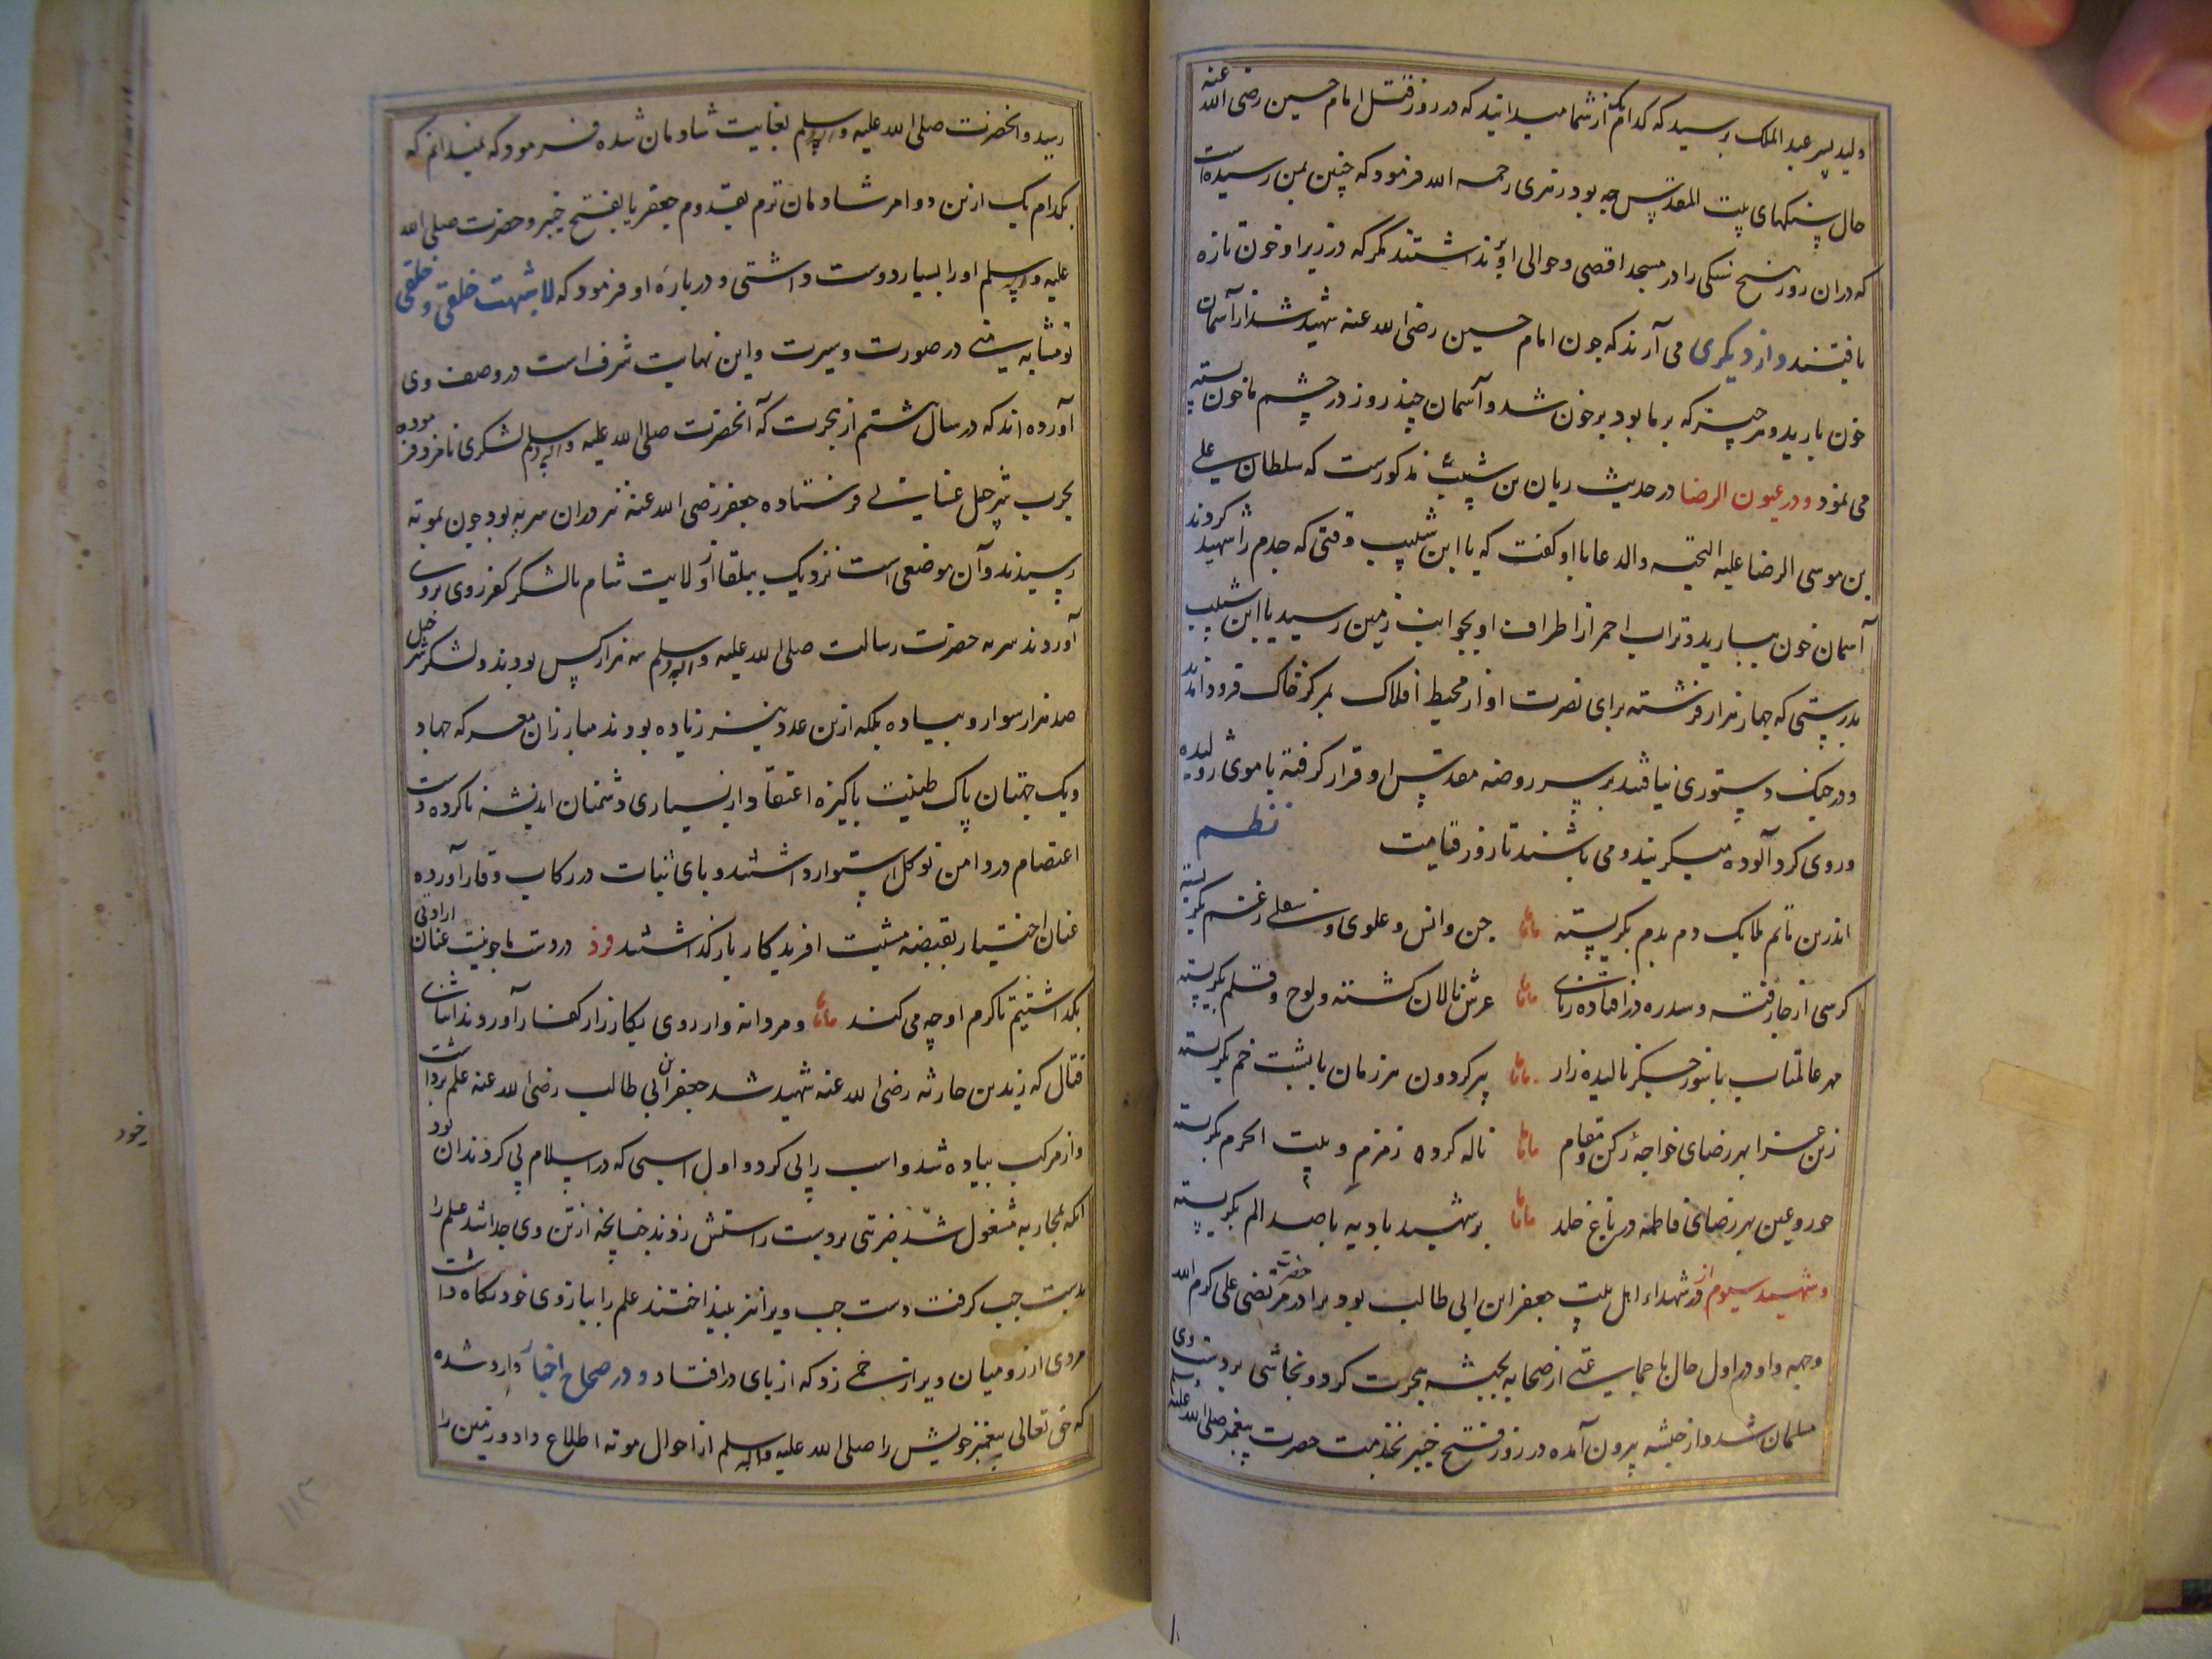 ولید پسر عبد الملک پرسید که کدام یک از شما میدانید که در روز قتل امام حسین رضی الله عنه
حال سنکهای بیت المقدس چه بود زهری رحمه الله فرمود که چنین بمن رسیده است
که دران روز هیچ سنکی را در مسجد اقصی و حوالی او بر نداشتند مکر که در زیر او خون تازه
یافتند و از دیکری می آرند که چون امام حسین رضی الله عنه شهید شد از آسمان
خون بارید و هر چیز که بر ما بود پر خون شد و آسمان چند روز در چشم ما خون بسته
می نمود و در عیون الرضا در حدیث ریان بن شبیب مذکورست که سلطان علی
بن موسی الرضا علیه التحیه والدعا با او کفت که یا ابن شبیب وقتی که جدم را شهید کردند
آسمان خون ببارید و تراب احمر از اطراف او بجوانب زمین رسید یا ابن شبیب
بدرستی که چهار هزار فرشته برای نصرت او از محیط افلاک بمرکز خاک فرود آمدند
و در جنک دستوری نیافتند بر سر روضه مقدس او قرار کرفته با موی ژولیده
و روی کرد آلوده میکریند و می باشند تا روز قیامت نظم
اندرین ماتم ملایک دم بدم بکریسته جن و انس و علوی و سفلی ز غم بکریسته
کرسی از جا رفته و سدره در افتاده ز پای عرش نالان کشته و لوح و قلم بکریسته
مهر عالمتاب با سوز جکر نالیده زار پیر کردون هر زمان با پشت خم بکریسته
زین عزا بهر رضای خواجهٔ رکن و مقام ناله کرده زمزم و بیت الحرم بکریسته
حور و عین بهر رضای فاطمه در باغ خلد بر شهید بادیه با صد الم بکریسته
و شهید سیوم از شهداء اهل بیت جعفر ابن ابی طالب بود برادر حضرت مرتضی علی کرم الله
وجهه و او در اول حال با جماعتی از صحابه بحبشه هجرت کرد و نجاشی بر دست وی
مسلمان شد و از حبشه بیرون آمده در روز فتح خیبر بخدمت حضرت پیغمبر صلی الله علیه وسلم
رسید و انحضرت صلی الله علیه واله وسلم بغایت شادمان شده فرمود که نمیدانم که
بکدام یک ازین دو امر شادمان ترم بقدوم جعفر یا بفتح خیبر و حضرت صلی الله
علیه واله وسلم او را بسیار دوست داشتی و در بارهٔ او فرمود که لا شبهت خلقی و خلقی
تو مشابه منی در صورت و سیرت و این نهایت شرف است در وصف وی
آورده اند که در سال هشتم از هجرت که آنحضرت صلی الله علیه واله وسلم لشکری نامزد فرموده
بحرب شرحبیل غسانی فرستاده جعفر رضی الله عنه نیز دران سریه بود چون بموته
رسیدند و آن موضعی است نزدیک ببلقا از ولایت شام با لشکر کفر روی بروی
آوردند سریه حضرت رسالت صلی الله علیه واله وسلم سه هزار کس بودند و لشکر شرحبیل
صد هزار سوار و پیاده بلکه ازین عدد نیز زیاده بودند مبارزان معرکه جهاد
و یک جهتان پاک طینت پاکیزه اعتقاد از بسیاری دشمنان اندیشه ناکرده دست
اعتصام در دامن توکل استوار داشتند و پای ثبات در رکاب وقار آورده
عنان اختیار بقبضه مشیت افریدکار بازکذاشتند فرد در دست ما چو نیست عنان ارادتی
بکذاشتیم تا کرم او چه می کند و مردانه وار روی بکارزار کفار آوردند اثنای
قتال که زید بن حارثه رضی الله عنه شهید شد جعفر ابن ابی طالب رضی الله عنه علم برداشت
و از مرکب پیاده شد و اسب را پی کرد و اول اسبی که در اسلام پی کردند ان بود
انکه بمحاربه مشغول شد ضربتی بر دست راستش زدند چنانچه از تن وی جدا شد علم را
بدست چپ کرفت دست چپ ویرا نیز بینداختند علم را ببازوی خود نکاه داشت
مردی از رومیان ویرا زخمی زد که از پای در افتاد و در صحاح اخبار وارد شده
که حق تعالی پیغمبر خویش را صلی الله علیه واله وسلم از احوال موته اطلاع داد و زمین را
خود
۱۱۲